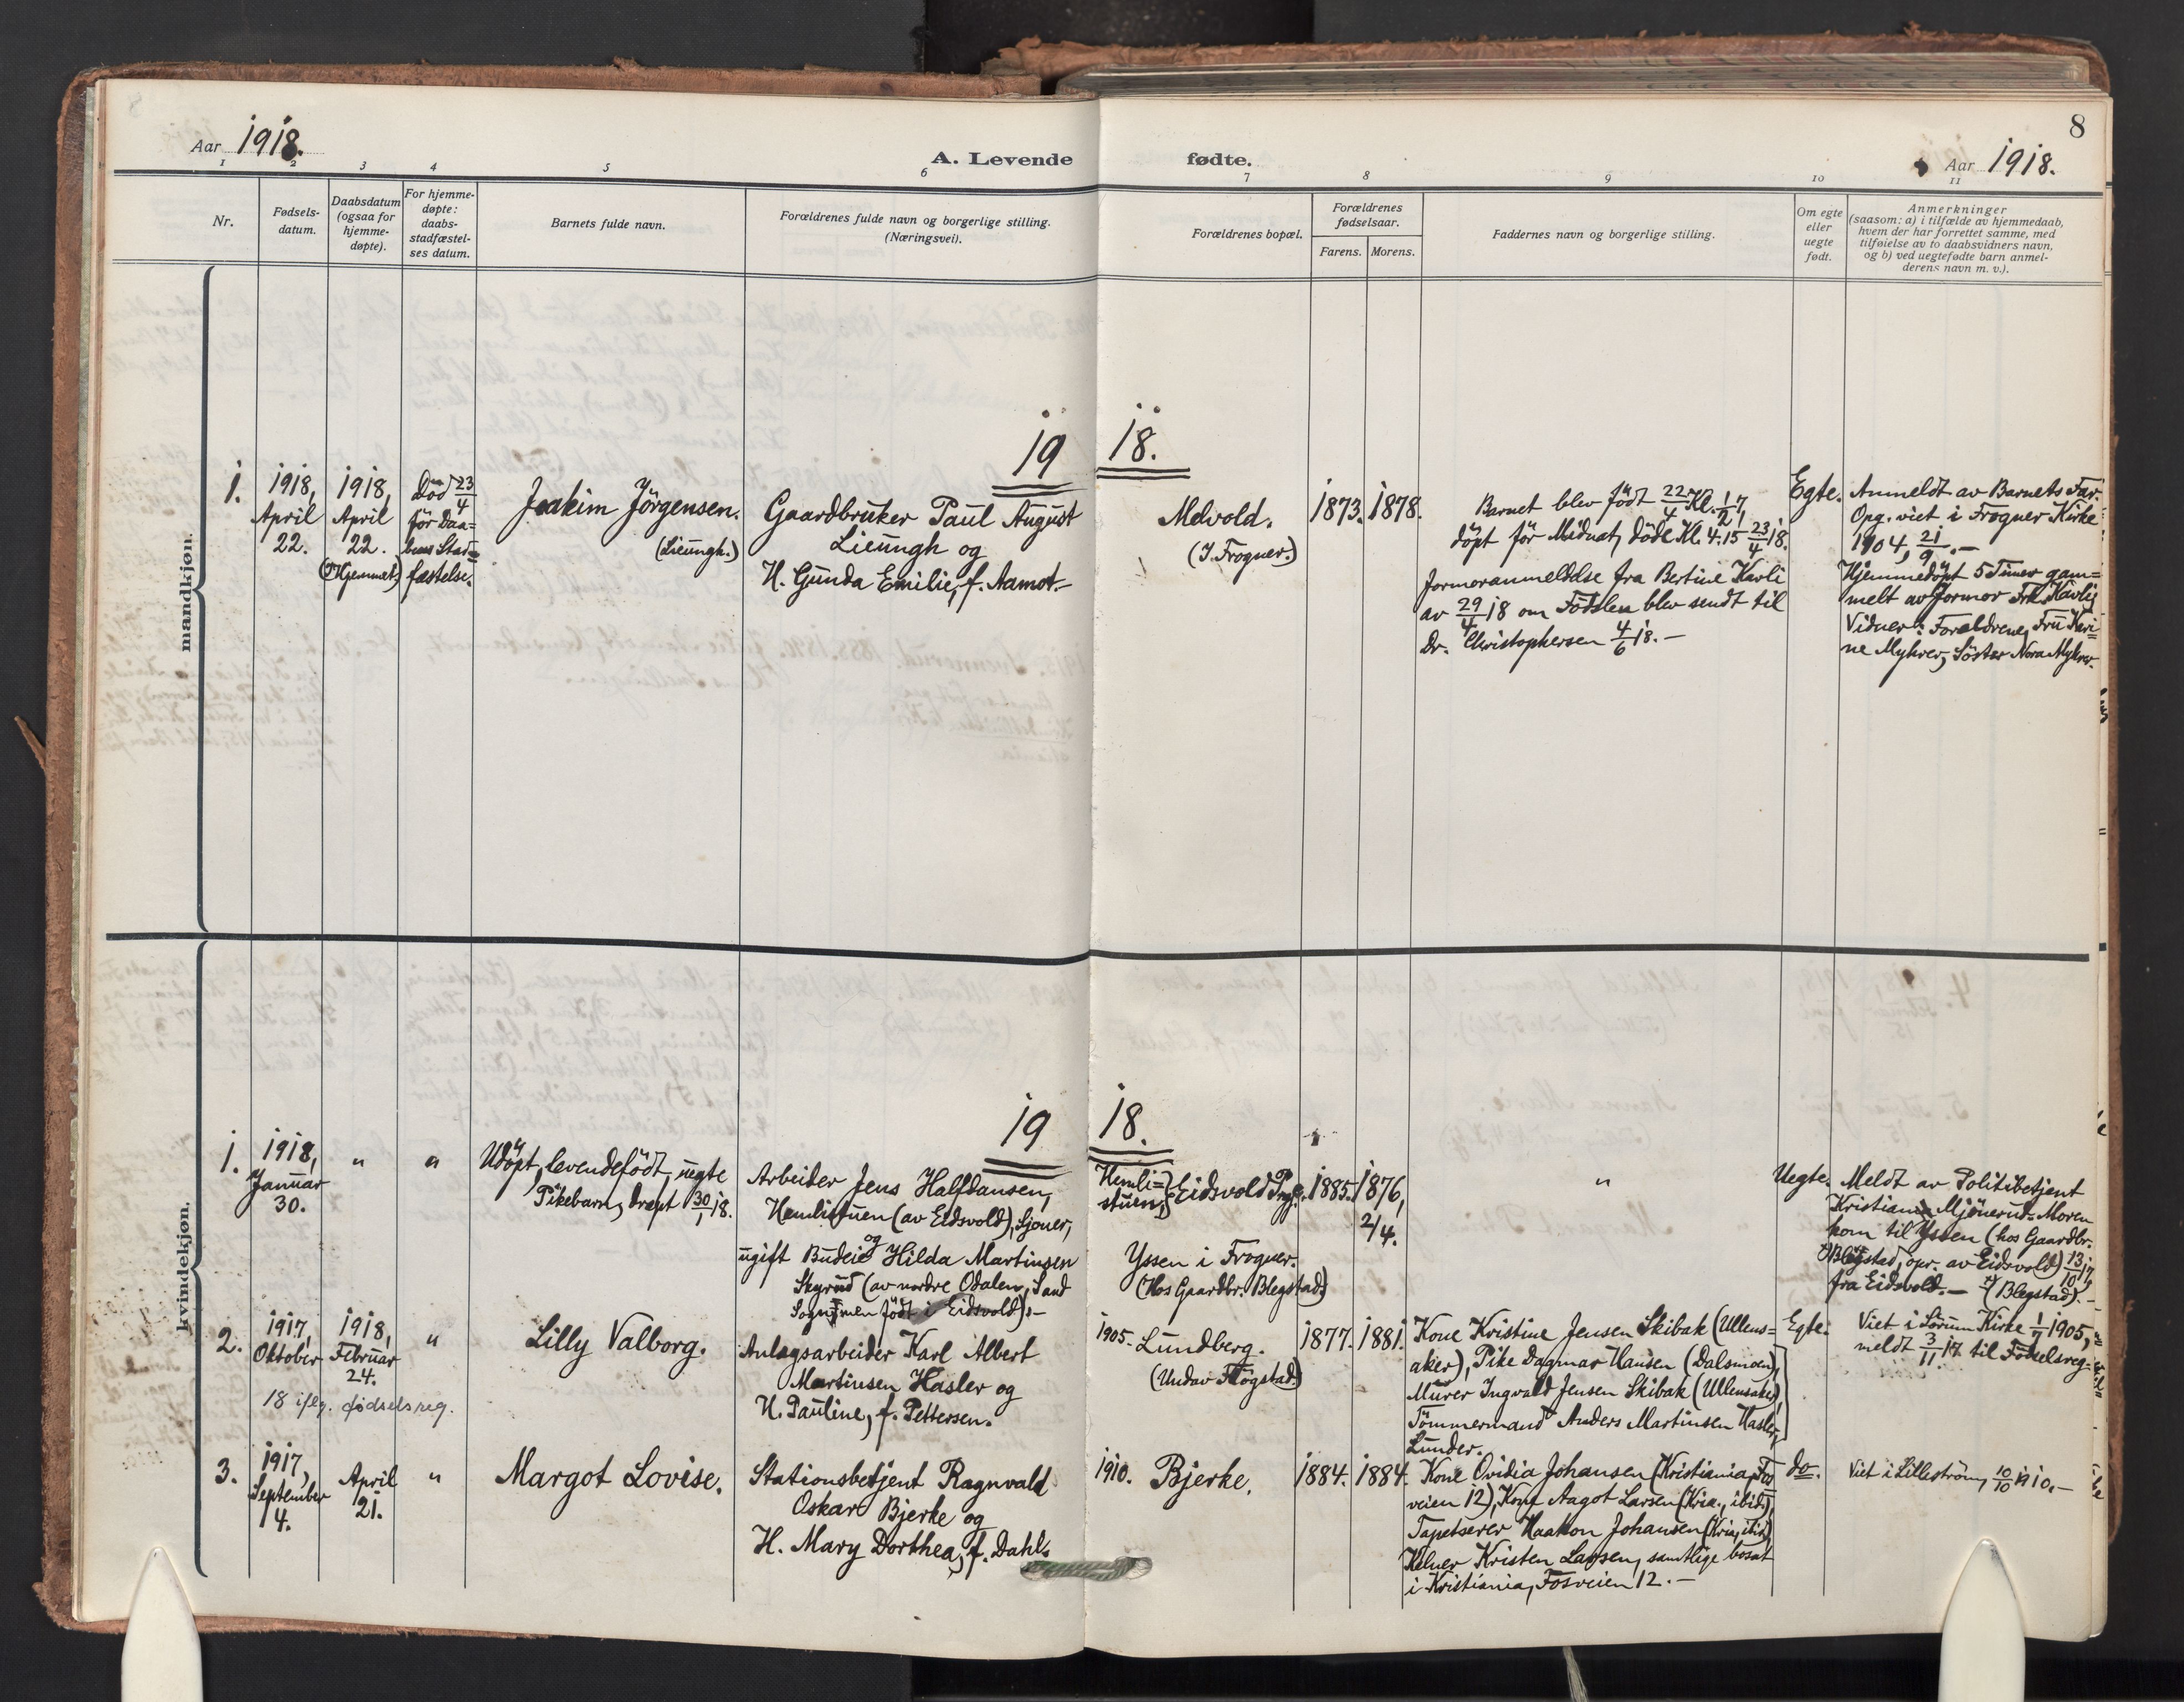 8
Aar 1918.
A. Levende fødte.
Aar 1918.
1 2 3 4 5 6 7 8 9 10 11
Nr.
Fødsels-
datum.
Daabsdatum
(ogsaa for
hjemme-
døpte).
For hjemme-
døpte:
daabs-
stadfæstel-
ses datum.
Barnets fulde navn.
Forældrenes fulde navn og borgerlige stilling.
(Næringsvei).
Forældrenes bopæl.
Forældrenes
fødselsaar.
Farens. Morens.
Faddernes navn og borgerlige stilling.
Om egte
eller
uegte
født.
Anmerkninger
(saasom: a) i tilfælde av hjemmedaab,
hvem der har forrettet samme, med
tilføielse av to daabsvidners navn,
og b) ved uegtefødte barn anmel-
derens navn m. v.).
mandkjøn.
19 18.
1.
1918,
April
22.
1918,
April
22.
(Hjemmet)
Död 23/4
för Daa=
bens Stad=
fæstelse.
Joakim Jörgensen.
(Lieungh.)
Gaardbruker Paul August
Lieungh og
H. Gunda Emilie, f. Aamot.-
Melvold.
(I. Frogner.)
1873. 1878.
Barnet blev födt 22/4 Kl. 1/2 7,
döpt för Midnat, döde Kl. 4.15 23/4 18.
Jormoranmeldelse fra Bertine Kavli
av 29/4 18 om Födslen blev sendt til
Dr. Christophersen 4/6 18.-
Egte.
Anmeldt av Barnets Far.
Opg. viet i Frogner Kirke
1904, 21/9.-
Hjemmedöpt 5 Timer gam=
melt av Jormor Frk. Kavli,
Vidner: Forældrene, Fru Kari=
ne Myhrer, Söster Nora Myhrer.
kvindekjøn.
19 18.
1.
1918,
Januar
30.
" "
Udöpt, levendefödt, uegte
Pikebarn, dræpt 30/1 18.
Arbeider Jens Halfdansen,
Hemlistuen (av Eidsvold), Gjoner,
og
ugift Budeie Hilda Martinsen
Skyrud (av nordre Odalen, Sand
Sogn, men födt i Eidsvold).-
Hemli=
stuen, Eidsvold Prg.
Yssen i Frogner.
(Hos Gaardbr. Blegstad.)
1885. 1876,
2/4.
"
Uegte.
Meldt av Politibetjent
Kristian Mjönerud.- Moren
kom til Yssen (hos Gaardbr.
Blegstad, opr. av Eidsvold) 13/10 17
fra Eidsvold.- (Blegstad).-
2.
1917,
Oktober
18 iflg. fødselsreg.
1918,
Februar
24.
"
Lilly Valborg.
Anlægsarbeider Karl Albert
Martinsen Hasler og
H. Pauline, f. Pettersen.
1905- Lundberg.
(Undav Flögstad.)
1877. 1881.
Kone Kristine Jensen Skibak (Ullens=
aker), Pike Dagmar Hansen (Dalsmoen),
Murer Ingvald Jensen Skibak (Ullensaker),
Tömmermand Anders Martinsen Hasler,
Lunder.
Egte.
Viet i Sörum Kirke 1/7 1905,
meldt 3/11 17 til Födselsreg.
3.
1917,
September
4.
April
21.
"
Margot Lovise.
Stationsbetjent Ragnvald
Oskar Bjerke og
H. Mary Dorthea, f. Dahl.
1910. Bjerke.
1884. 1884.
Kone Ovidia Johansen (Kristiania, Fos
veien 12), Kone Aagot Larsen (Kria., ibid.),
Tapetserer Haakon Johansen (Kria, ibid),
Kelner Kristen Larsen, samtlige bosat
i Kristiania, Fosveien 12.-
do.
Viet i Lilleström, 10/10 1910.-